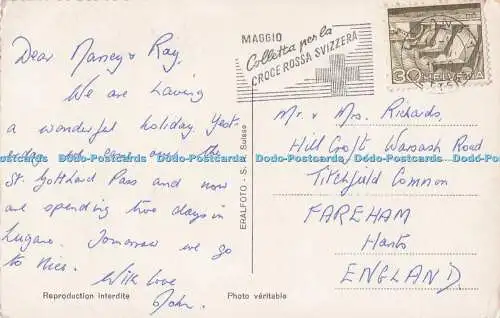 Dear Nancy & Ray,
We are having
a wonderful holiday. Yest-
erday we came over the
St. Gotthard Pass and now
are spending two days in
Lugano. Tomorrow we go
to Nice.
With love
John.
Reproduction interdite
Photo véritable
ERALFOTO - S. Suisse
MAGGIO
Colletta per la
CROCE ROSSA SVIZZERA
30 HELVETIA
Mr. & Mrs. Richards,
Hill Croft Warsash Road
Titchfield Common
FAREHAM
Hants
ENGLAND
Dodo-Postcards Dodo-Postcards Dodo-Postcards Dodo-Postcards Dodo-Postcards